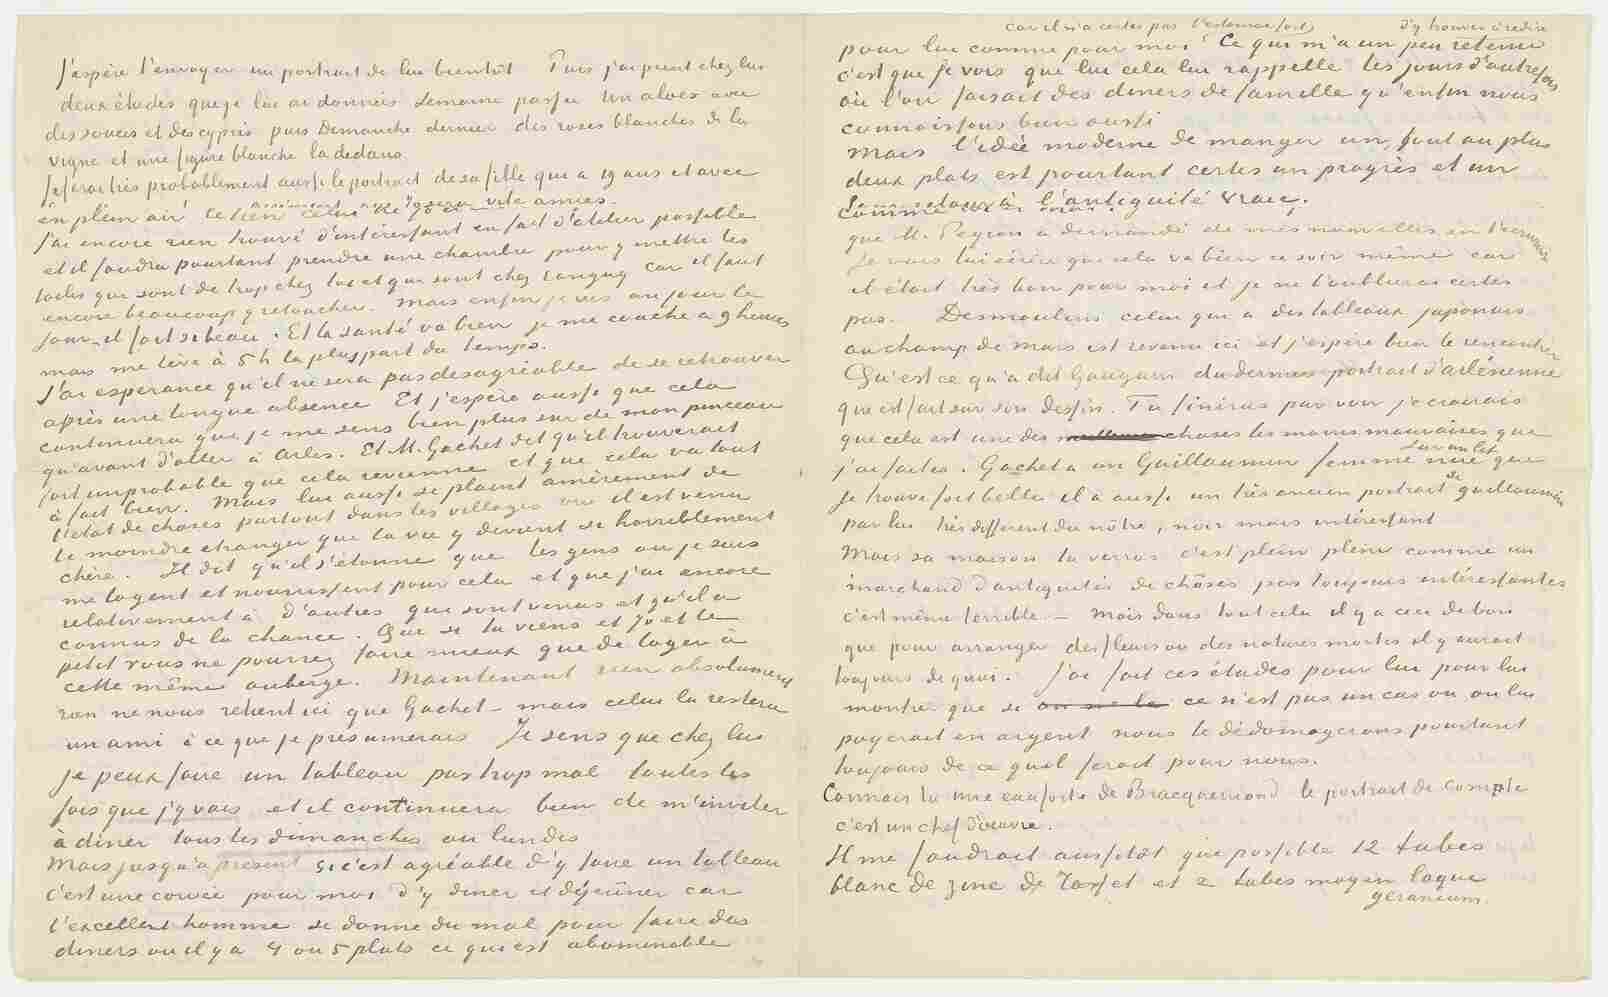 J'espère t'envoyer un portrait de lui bientôt Puis j'ai peint chez lui
deux études que je lui ai données semaine passée un aloes avec
des soucis et des cyprès puis Dimanche dernier des roses blanches de la
vigne et une figure blanche la dedans.
Je ferai très probablement aussi le portrait de sa fille qui a 19 ans et avec
vite amies.
J'ai encore rien trouvé d'intéressant en fait d'atelier possible
et il faudra pourtant prendre une chambre pour y mettre les
toiles qui sont de trop chez toi et qui sont chez Tanguy car il faut
encore beaucoup y retoucher. Mais enfin je vis au jour le
jour - il fait si beau. Et la santé va bien je me couche à 9 heures
mais me lève à 5 h la plus part du temps.
J'ai espérance qu'il ne sera pas desagréable de se retrouver
après une longue absence Et j'espère aussi que cela
continuera que je me sens bien plus sur de mon pinceau
qu'avant d'aller à Arles. Et M. Gachet dit qu'il trouverait
fort improbable que cela revienne et que cela va tout
à fait bien. Mais lui aussi se plaint amèrement de
l'état de choses partout dans les villages où il est venu
le moindre étranger que la vie y devient si horriblement
chère. Il dit qu'il s'étonne que les gens où je suis
me logent et nourrissent pour cela et que j'ai encore
relativement à d'autres qui sont venus et qu'il a
connus de la chance. Que si tu viens et Jo et le
petit vous ne pourrez faire mieux que de loger à
cette même auberge. Maintenant rien absolument
rien ne nous retient ici que Gachet - mais celui la restera
un ami à ce que je présumerais Je sens que chez lui
je peux faire un tableau pas trop mal toutes les
fois que j'y vais et il continuera bien de m'inviter
à diner tous les dimanches ou lundis
Mais jusqu'à présent si c'est agréable d'y faire un tableau
c'est une corvée pour moi d'y diner et déjeuner car
l'excellent homme se donne du mal pour faire des
diners où il y a 4 ou 5 plats ce qui est abominable
pour lui comme pour moi car il n'a certes pas l'estomac fort
Ce qui m'a un peu retenu d'y trouver à redire
c'est que je vois que lui cela lui rappelle les jours d'autrefois
où l'on faisait des diners de famille qu'enfin nous
connaissons bien aussi
Mais l'idée moderne de manger un, tout au plus
deux plats est pourtant certes un progrès et un
retour à l'antiquité vraie.
que M. Peyron a demandé de mes nouvelles en t'écrivant
je vais lui écrire que cela va bien ce soir même car
il était très bon pour moi et je ne l'oublierai certes
pas. Desmoulins celui qui a des tableaux japonais
au champ de mars est revenu ici et j'espère bien le rencontrer
Qu'est ce qu'a dit Gauguin du dernier portrait d'arlésienne
qui est fait sur son dessin. Tu finiras par voir je croirais
que cela est une des choses les moins mauvaises que
j'ai faites. Gachet a un Guillaumin femme nue sur un lit que
je trouve fort belle il a aussi un très ancien portrait de guillaumin
par lui très different du nôtre, noir mais intéressant
Mais sa maison tu verras c'est plein plein comme un
marchand d'antiquités de chôses pas toujours intéressantes
c'est même terrible - mais dans tout cela il y a ceci de bon
que pour arranger des fleurs ou des natures mortes il y aurait
toujours de quoi. J'ai fait ces études pour lui pour lui
montrer que si ce n'est pas un cas où on lui
payerait en argent nous le dédomagerons pourtant
toujours de ce qu'il ferait pour nous.
Connais tu une eau forte de Bracquemond le portrait de Comte
c'est un chef d'oeuvre.
Il me faudrait aussitôt que possible 12 tubes
blanc de zinc de Tasset et 2 tubes moyen laque
geranium.